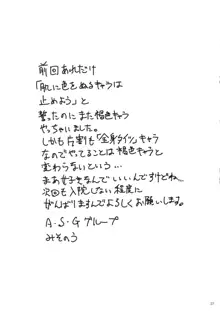 前回あれだけ
「肌に色をぬるキャラは
止めよう」と
誓ったのにまた褐色キャラ
やっちゃいました。
しかも片割も「全身タイツ」キャラ
なのでやってることは褐色キャラと
変わらないという…
まあ好きなんでいいんですけどね
次回も入院しない程度に
がんばりますんでよろしくお願いします。
A・S・Gグループ
みそのう